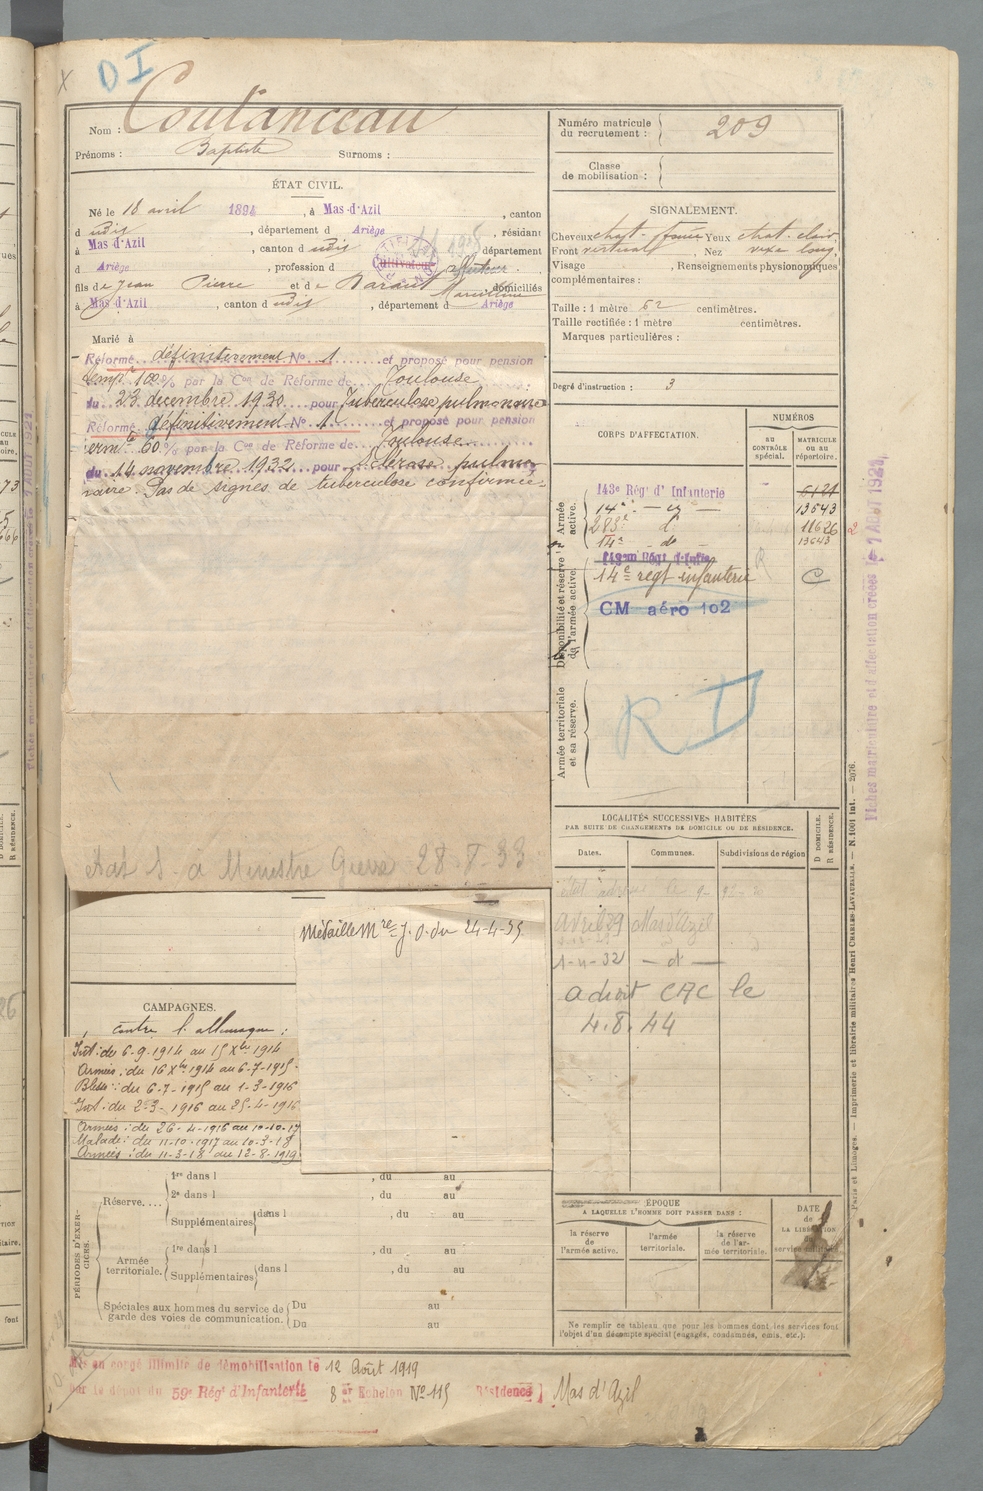 D I
Nom : Coutanceau
Prénoms : Baptiste Surnoms :
ÉTAT CIVIL.
Né le 18 avril 1894, à Mas-d'Azil, canton
d udit, département d Ariège, résidant
à Mas d'Azil, canton d udit, département
d Ariège, profession de cultivateur
fils de Jean Pierre et de Barant Marceline, domiciliés
à Mas d'Azil, canton d udit, département d Ariège
Marié à
Réformé définitivement N° 1 et proposé pour pension
temp. 100 % par la Con de Réforme de Toulouse
du 23 decembre 1930 pour Tuberculose pulmonaire
Réformé définitivement N° 1 et proposé pour pension
60 % par la Con de Réforme de Toulouse
du 14 novembre 1932 pour Sclérose pulmo
naire. Pas de signes de tuberculose confirmée
à Ministre Guerre 28-7-33
Médaille Mre J.O. du 24-4-35
CAMPAGNES.
contre l'allemagne :
Int : du 6-9-1914 au 15 Xbre 1914
Armées : du 16 Xbre 1914 au 6-7-1915
Blessé : du 6-7-1915 au 1-3-1916
Int. du 2-3-1916 au 25-4-1916
Armées : du 26-4-1916 au 10-10-17
Malade : du 11-10-1917 au 10-3-18
Armées : du 11-3-18 au 12-8-1919
PÉRIODES D'EXERCICES.
Réserve....
1re dans l , du au
2e dans l , du au
Supplémentaires dans l , du au
Armée territoriale.
1re dans l , du au
Supplémentaires dans l , du au
Spéciales aux hommes du service de garde des voies de communication.
Du au
Du au
Mis en congé illimité de démobilisation le 12 Août 1919
par le dépôt du 59e Régt d'Infanterie 8e Echelon N° 115 Résidence Mas d'Azil
Numéro matricule du recrutement : 209
Classe de mobilisation :
SIGNALEMENT.
Cheveux chat. foncé Yeux chat. clair
Front vertical, Nez vexe long
Visage , Renseignements physionomiques
complémentaires :
Taille : 1 mètre 62 centimètres.
Taille rectifiée : 1 mètre centimètres.
Marques particulières :
Degré d'instruction : 3
CORPS D'AFFECTATION.
NUMÉROS
AU CONTRÔLE spécial.
MATRICULE OU AU répertoire.
Armée active.
143e Rég' d' Infanterie
14e 13643
283e d° 11626
14e do 13643
Disponibilité et réserve de l'armée active.
14e regt infanterie C
CM aéro 102
Armée territoriale et sa réserve.
R D
LOCALITÉS SUCCESSIVES HABITÉES
PAR SUITE DE CHANGEMENTS DE DOMICILE OU DE RÉSIDENCE.
Dates. Communes. Subdivisions de région D DOMICILE. R RÉSIDENCE.
Avril 29 Mas d'Azil
1-4-32 — d° —
a droit CAC le
4.8.44
ÉPOQUE
A LAQUELLE L'HOMME DOIT PASSER DANS :
la réserve de l'armée active.
l'armée territoriale.
la réserve de l'armée territoriale.
DATE de LA LIBÉRATION
Ne remplir ce tableau que pour les hommes dont les services font
l'objet d'un décompte spécial (engagés, condamnés, omis, etc.).
Paris et Limoges. — Imprimerie et librairie militaires Henri CHARLES-LAVAUZELLE. — N. 1001 int. — 2976.
Fiches matriculaire et d'affectation créées le 1 AOUT 1927